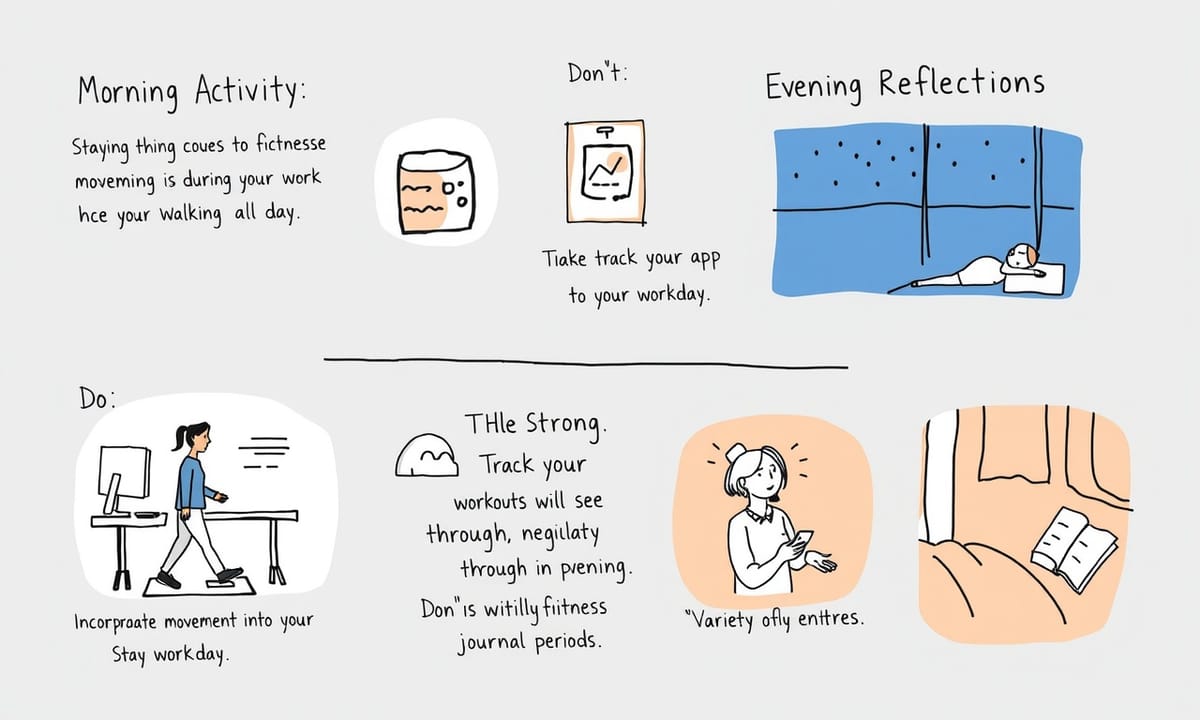 Morning Activity:
Staying thing coues to fictnesse
moveming is during your work
hce your Walking all day.
Don"t:
Tiake track your app
to your workday.
Evening Reflections
Do:
Incorproate movement into your
Stay workday.
THle Strong.
Track your
workouts will see
through, negillaty
through in pvening.
Don"is witilly fiitness
journal periods.
"Variety ofly enttres.